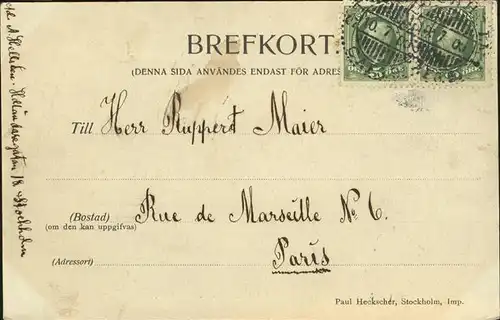 BREFKORT.
(DENNA SIDA ANVÄNDES ENDAST FÖR ADRES
Till Herr Ruppert Maier
(Bostad) Rue de Marseille No 6.
(om den kan uppgifvas)
(Adressort) Paris
Paul Heckscher, Stockholm, Imp.
Holländaregatan 18 Stockholm